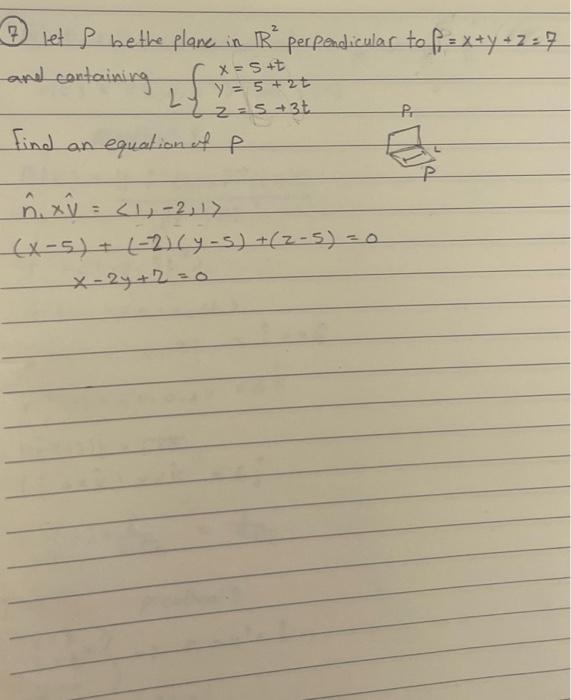 ⑦ let P be the plane in ℝ² perpendicular to P₁ = x+y+z=7
and containing L { x = 5+t
y = 5+2t
z = 5+3t
Find an equation of P
P₁
L
P
n̂₁ x v̂ = <1, -2, 1>
(x-5) + (-2)(y-5) + (z-5) = 0
x-2y+z=0